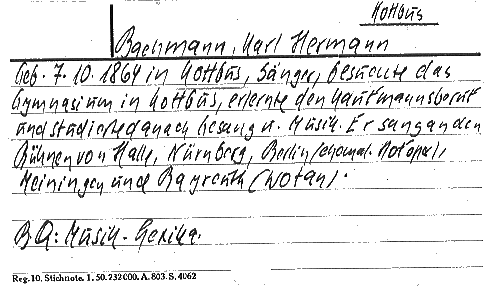 Kottbus
Bachmann, Karl Hermann
Geb. 7.10.1864 in Kottbus, Sänger, besuchte das
Gymnasium in Kottbus, erlernte den Kaufmannsberuf
und studierte danach Gesang u. Musik. Er sang an den
Bühnen von Halle, Nürnberg, Berlin (ehemal. Hofoper),
Meiningen und Bayreuth (Wotan).
B.Q.: Musik-Lexika.
Reg. 10. Stichnote. 1. 50. 232000. A. 803. S. 4062